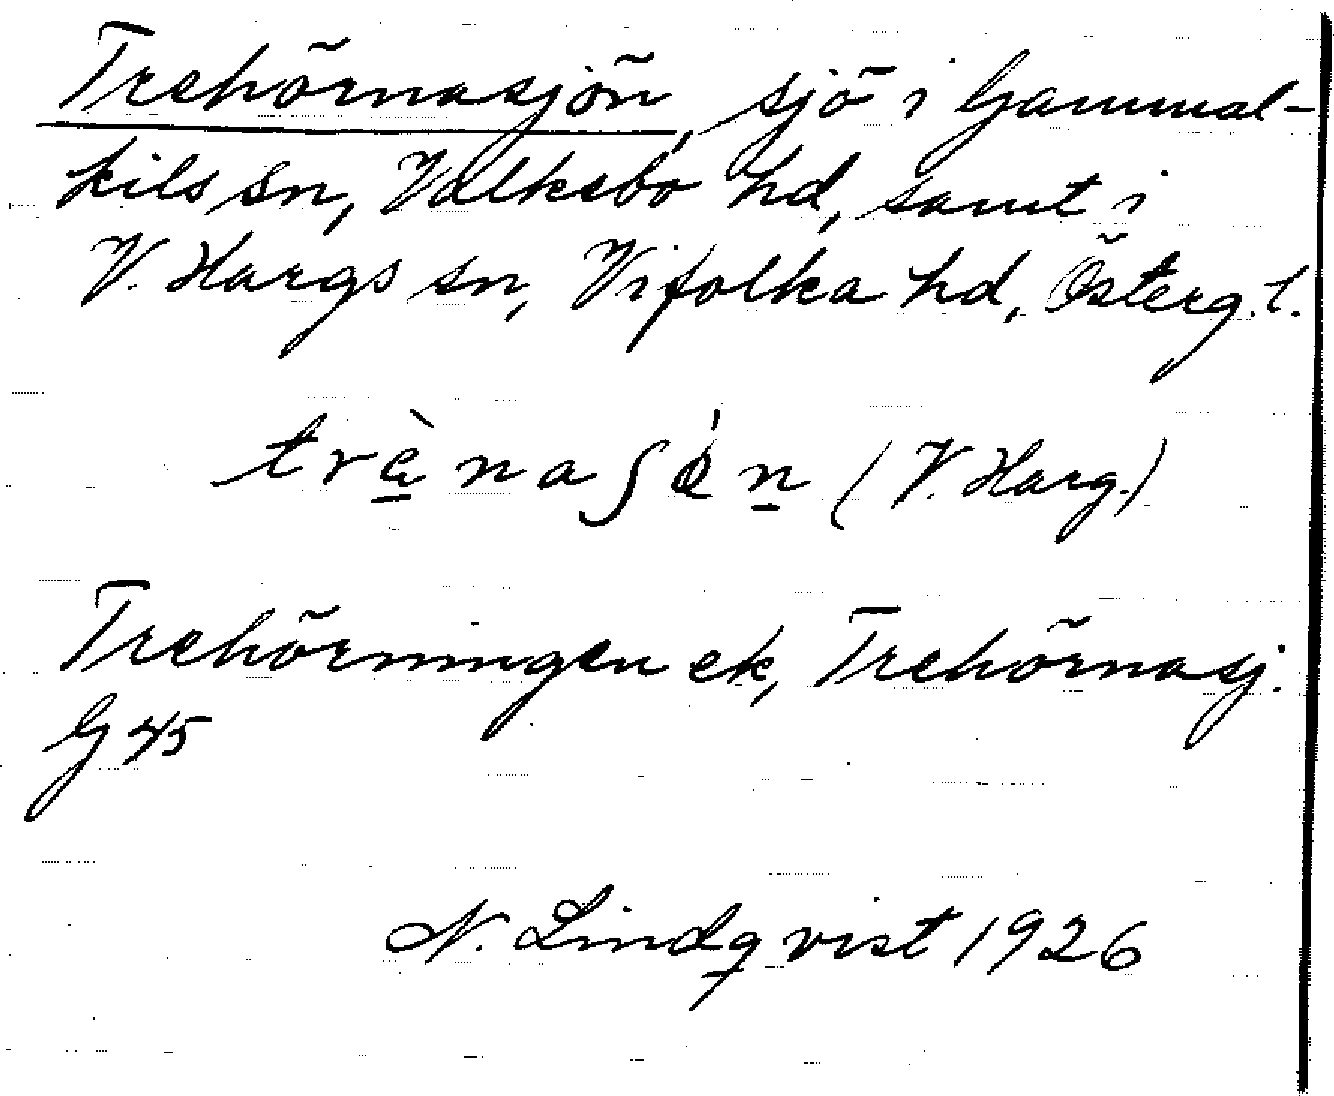 Trehörnasjön, sjö i Gammal-
kils sn, Valkebo hd, samt i
V. Hargs sn, Vifolka hd, Österg. l.
(V. Harg.)
Trehörningen ek, Trehörnasj.
G 45
N. Lindqvist 1926